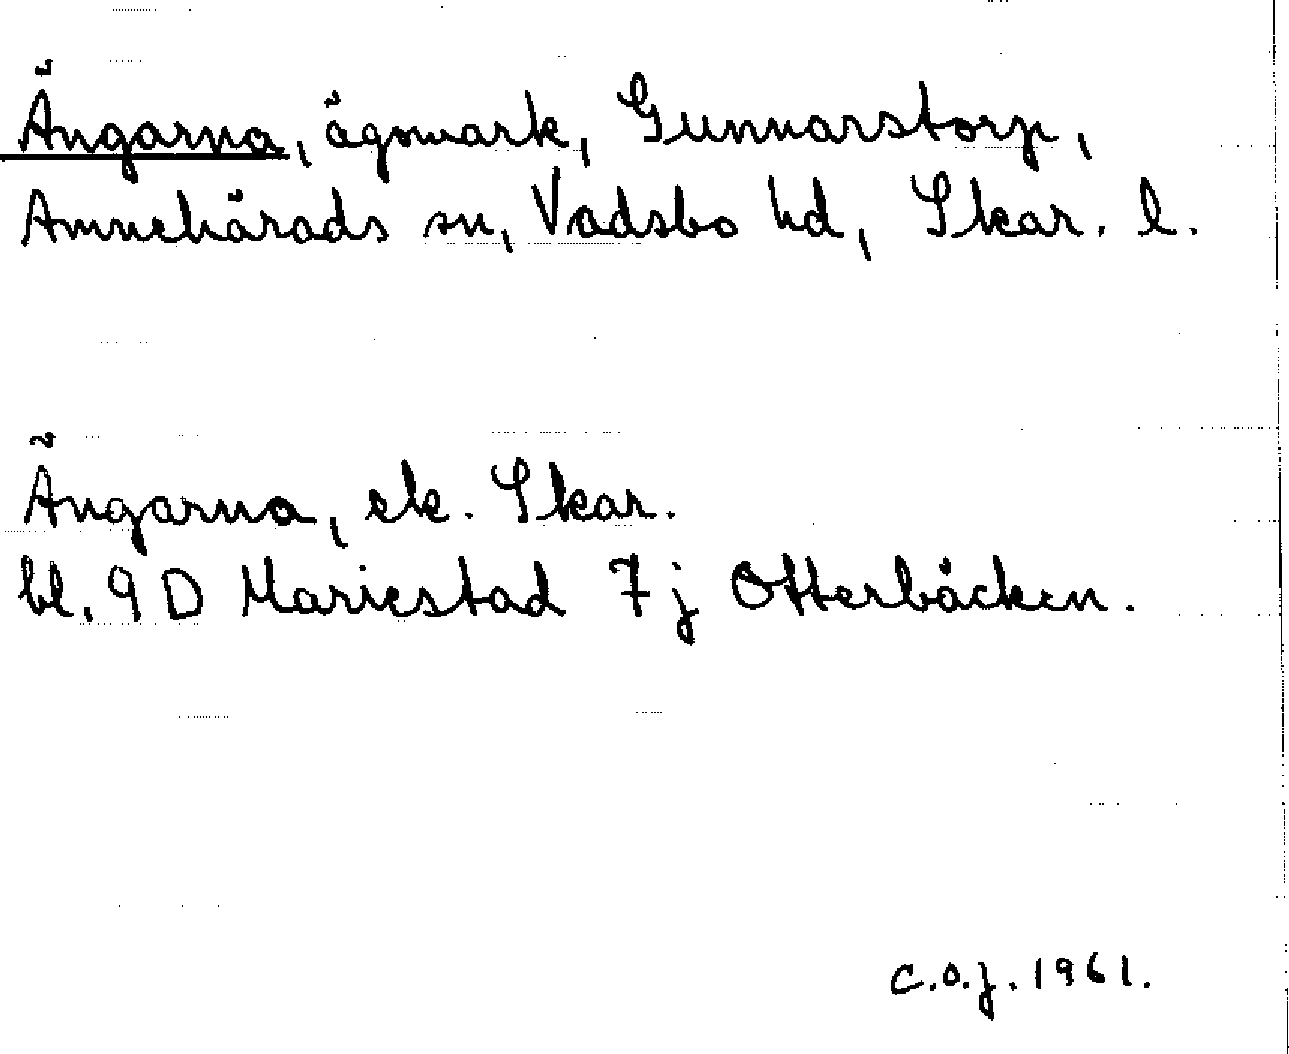 Ängarna, ägomark, Gunnarstorp,
Amnehärads sn, Vadsbo hd, Skar. l.
Ängarna, ek. Skar.
bl. 9D Mariestad 7j Otterbäcken.
C.O.J. 1961.